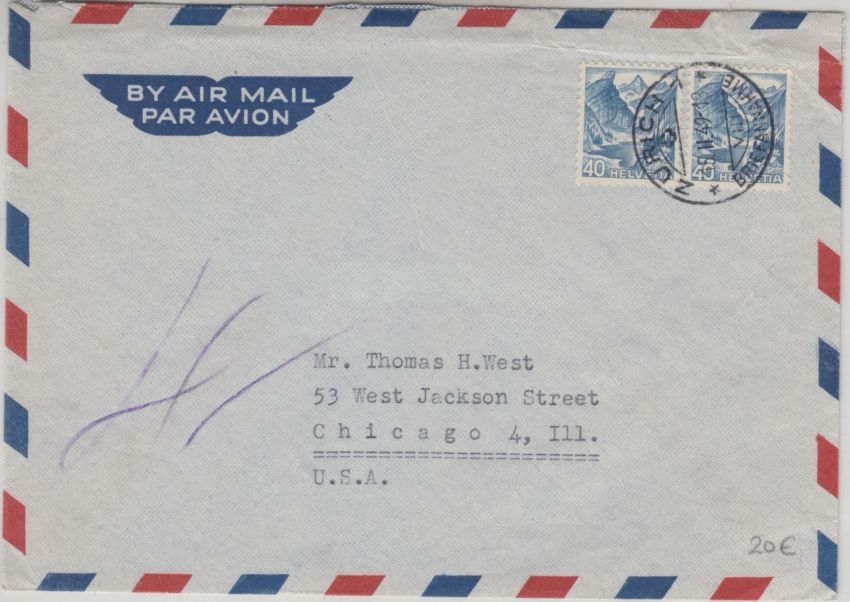 BY AIR MAIL
PAR AVION
40 HELVETIA
40 HELVETIA
ZÜRICH 1
BRIEFANNAHME
Mr. Thomas H.West
53 West Jackson Street
Chicago 4, Ill.
======================
U.S.A.
20€